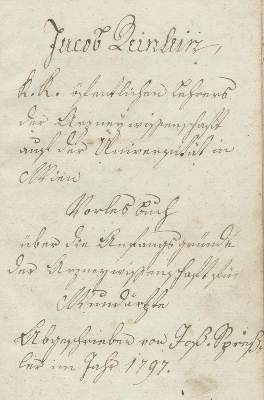 Jacob Reinlein,
K. K. öfentlichen Lehrers
der Arzneywissenschaft
auf der Universität in
Wien
Vorlesbuch
über die Anfangsgründe
der Arzneywissenschaft für
Wundärzte
Abgeschrieben von Jos. Spreß-
ler im Jahr 1797.